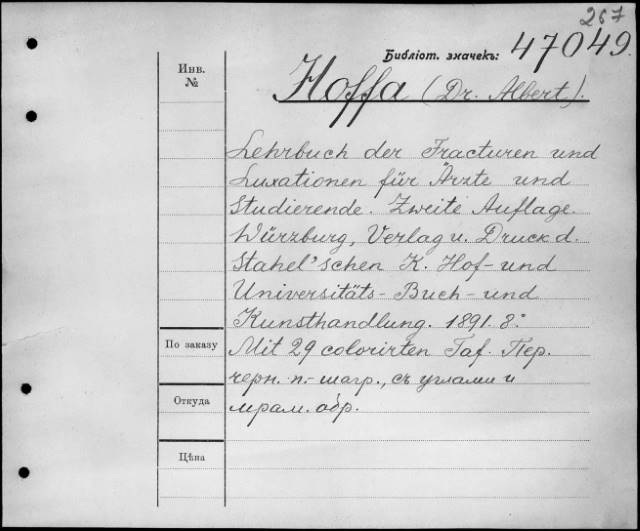 267
Библіот. значекъ: 47049.
Инв.
№
Hoffa (Dr. Albert).
Lehrbuch der Fracturen und
Luxationen für Ärzte und
Studierende. Zweite Auflage.
Würzburg, Verlag u. Druck d.
Stahel'schen K. Hof- und
Universitäts- Buch- und
Kunsthandlung. 1891. 8°.
По заказу
Mit 29 colorirten Taf. Пер.
черн. п.- шагр., съ углами и
Откуда
мрам. обр.
Цѣна